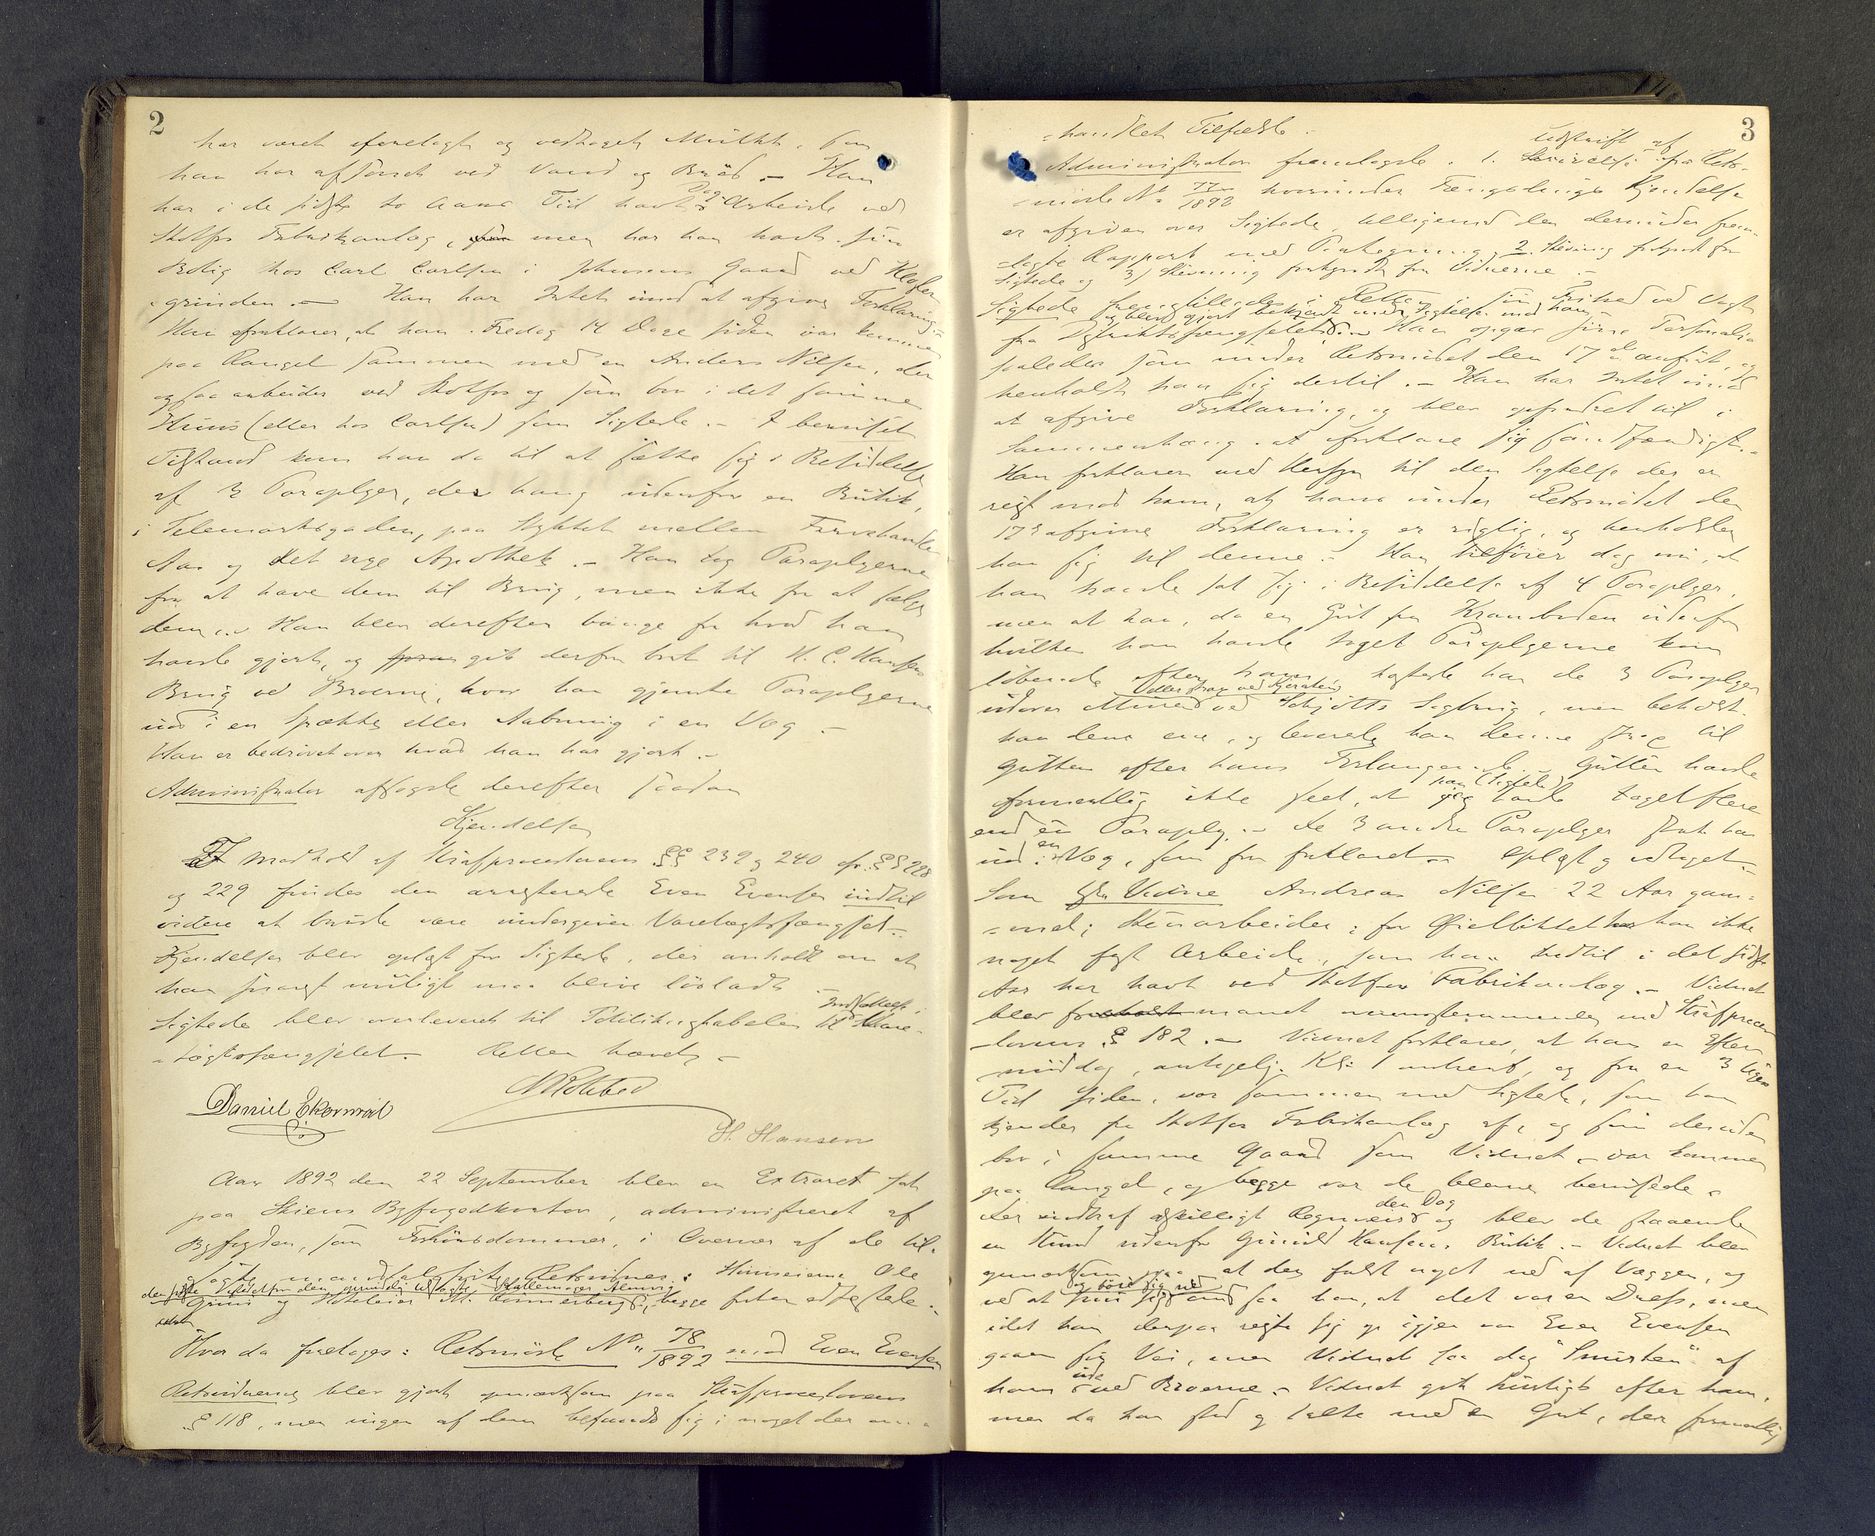 2
har været forelagt og vedtaget Mulkt, som
han har afsonet ved Vand og Brød. - Han
har i de sidste to Aars Tid havt Dag-Arbeide ved
Skotfos Fabrikanlæg, men har han havt sin
Bolig hos Carl Carlsen i Johnsens Gaard ved Kloster-
grinden. - Han har Intet imod at afgive Forklaring. -
Han forklarer, at han Fredag 14 Dage siden var kommen
paa Rangel sammen med en Anders Nilsen, der
ogsaa arbeider ved Skotfos og som bor i det samme
Huus (eller hos Carlsen) som Sigtede. - I beruset
Tilstand kom han da til at sætte sig i Besiddelse
af 3 Paraplyer, der hang udenfor en Butik,
i Telemarksgaden, paa Stykket mellem Farvehandler
Aas og det nye Apothek. - Han tog Paraplyerne
for at have dem til Brug, men ikke for at sælge
dem. - Han blev derefter bange for hvad han
havde gjort, og gik derfor bort til H. C. Hansens
Brug ved Broerne, hvor han gjemte Paraplyerne
ind i en Sprække eller Aabning i en Væg. -
Han er bedrøvet over hvad han har gjort. -
Administrator afsagde derefter saadan
Kjendelse
I Medhold af Strafproceslovens §§ 239 og 240 cfr. §§ 228
og 229 findes den arresterede Even Evensen indtil
videre at burde være undergiven Varetægtsfængsel. -
Kjendelsen blev oplæst for Sigtede, der anholdt om at
han snarest muligt maa blive løsladt. -
Sigtede blev overleveret til Politikonstabelen til Indsættelse i Vare-
tægtsfængslet. - Retten hævet. -
Daniel Ekornrød
H. Hansen
Aar 1892 den 22 September blev en Extraret sat
paa Skiens Byfogedkontor, administreret af
Byfogden, som Forhørsdommer, i Overvær af de til-
Retsvidner: Huuseierne Ole
Hvor da foretages: Retsmøde No 78/1892 med Even Evensen
Retsvidnerne blev gjort opmærksom paa Strafproceslovens
§ 118, men ingen af dem befandt sig i noget der om-
3
handlet Tilfælde.
Administrator fremlagde: 1. Udskrift af fra Rets-
møde No 77/1892 hvorunder Fængslings Kjendelse
er afgiven over Sigtede, alligemed den derunder frem-
lagte Rapport med Paategning, 2. Stevning forkyndt for
Sigtede og 3) Stevning forkyndt for Vidnerne. -
Sigtede fremstilledes i Retten i sin Frihed ved Vagt
og blev gjort bekjendt med Sigtelsen mod ham. -
fra Distriktsfængslet. - Han opgav sine Personalia
saaledes som under Retsmødet den 17de anført, og
henholdt han sig dertil. - Han har Intet imod
at afgive Forklaring, og blev opfordret til i
Sammenhæng at forklare sig sandfærdigt. -
Han forklarer med Hensyn til den Sigtelse der er
reist mod ham, at hans under Retsmødet den
17de afgivne Forklaring er rigtig, og henholder
han sig til denne. - Han tilføier dog nu, at
han havde sat sig i Besiddelse af 4 Paraplyer,
men at han, da en Gut fra Kramboden udenfor
hvilken han havde taget Paraplyerne kom
løbende efter ham, kastede han de 3 Paraplyer
ved Schjøtts Sagbrug, men beholdt
han den ene, og leverede han denne strax til
Gutten efter hans Forlangende. Gutten havde
formentlig ikke seet, at han (Sigtede) havde taget flere
end én Paraply. - De 3 andre Paraplyer stak han
ind i en Væg, som før forklaret. - Oplæst og vedtaget. -
Som 1ste Vidne Andreas Nilsen 22 Aar gam-
mel; Stenarbeider; for Øieblikket har han ikke
noget fast Arbeide, som han indtil i det sidste
Aar har havt ved Skotfos Fabrikanlæg. - Vidnet
blev formanet overensstemmende med Strafproces-
lovens § 182. - Vidnet forklarer, at han en Efter-
middag, antagelig Kl: 1 omtrent, og for en 3 Ugers
Tid siden, var sammen med Sigtede, som han
kjender fra Skotfos Fabrikanlæg af, og som desuden
bor i samme Gaard som Vidnet, - var kommen
paa Rangel, og begge var de blevne berusede.
Der indtraf adskilligt Regnveir den Dag og blev de staaende
en Stund udenfor Gunild Hansens Butik. - Vidnet blev
opmærksom paa at der faldt noget ned af Væggen, og
ved at bøie sig ned saa han, at det var en Duk, men
idet han derpaa reiste sig op igjen var Even Evensen
gaaen sin Vei, men Vidnet saa dog "Snurten" af
ham ude ved Broerne. - Vidnet gik hurtigt efter ham,
men da han stod og talte med en Gut, der formentlig